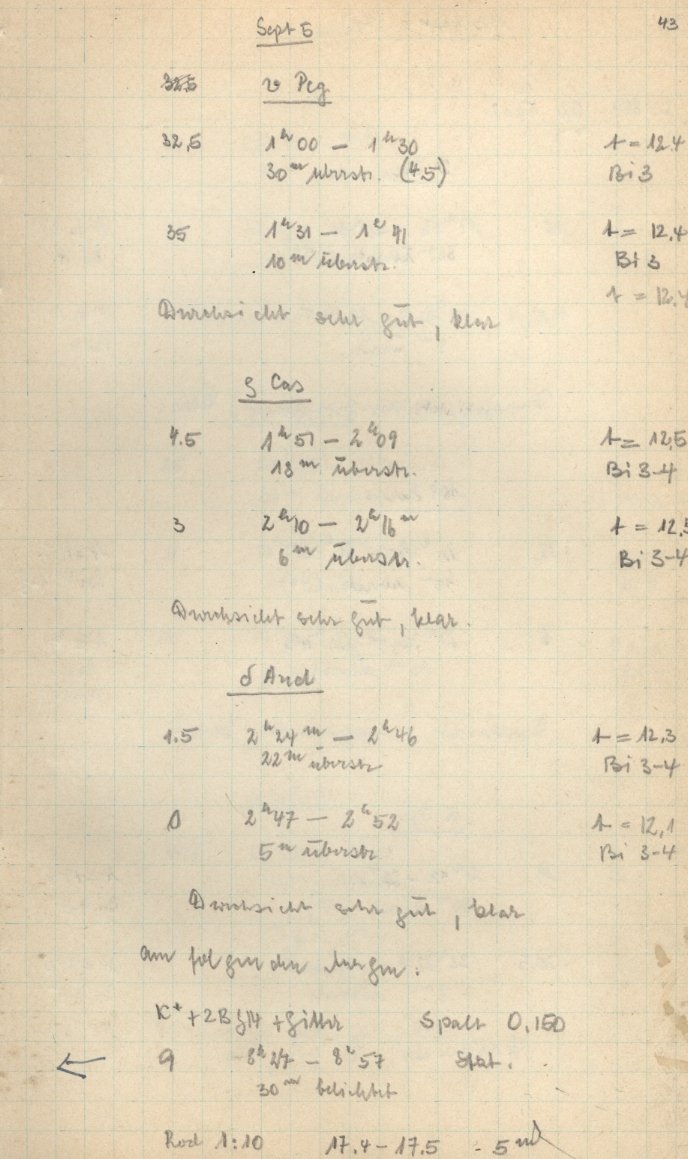 Sept 5 43
υ Peg
32,5 1ʰ00 – 1ʰ30 t = 12.4
30ᵐ überstr. (4.5) Bi 3
35 1ʰ31 – 1ʰ41 t = 12,4
10ᵐ überstr. Bi 3
t = 12,4
Durchsicht sehr gut, klar
Cas
4.5 1ʰ51 – 2ʰ09 t = 12,5
18ᵐ überstr. Bi 3-4
3 2ʰ10 – 2ʰ16ᵐ t = 12,5
6ᵐ überstr. Bi 3-4
Durchsicht sehr gut, klar.
δ And
1.5 2ʰ24ᵐ – 2ʰ46 t = 12.3
22ᵐ überstr Bi 3-4
0 2ʰ47 – 2ʰ52 t = 12,1
5ᵐ überstr Bi 3-4
Durchsicht sehr gut, klar
am folgenden Morgen.
+ Gitter Spalt 0,150
← 9 8ʰ27 – 8ʰ57
30ᵐ belichtet
Rod 1:10 17.4 – 17.5 - 5ᵐ